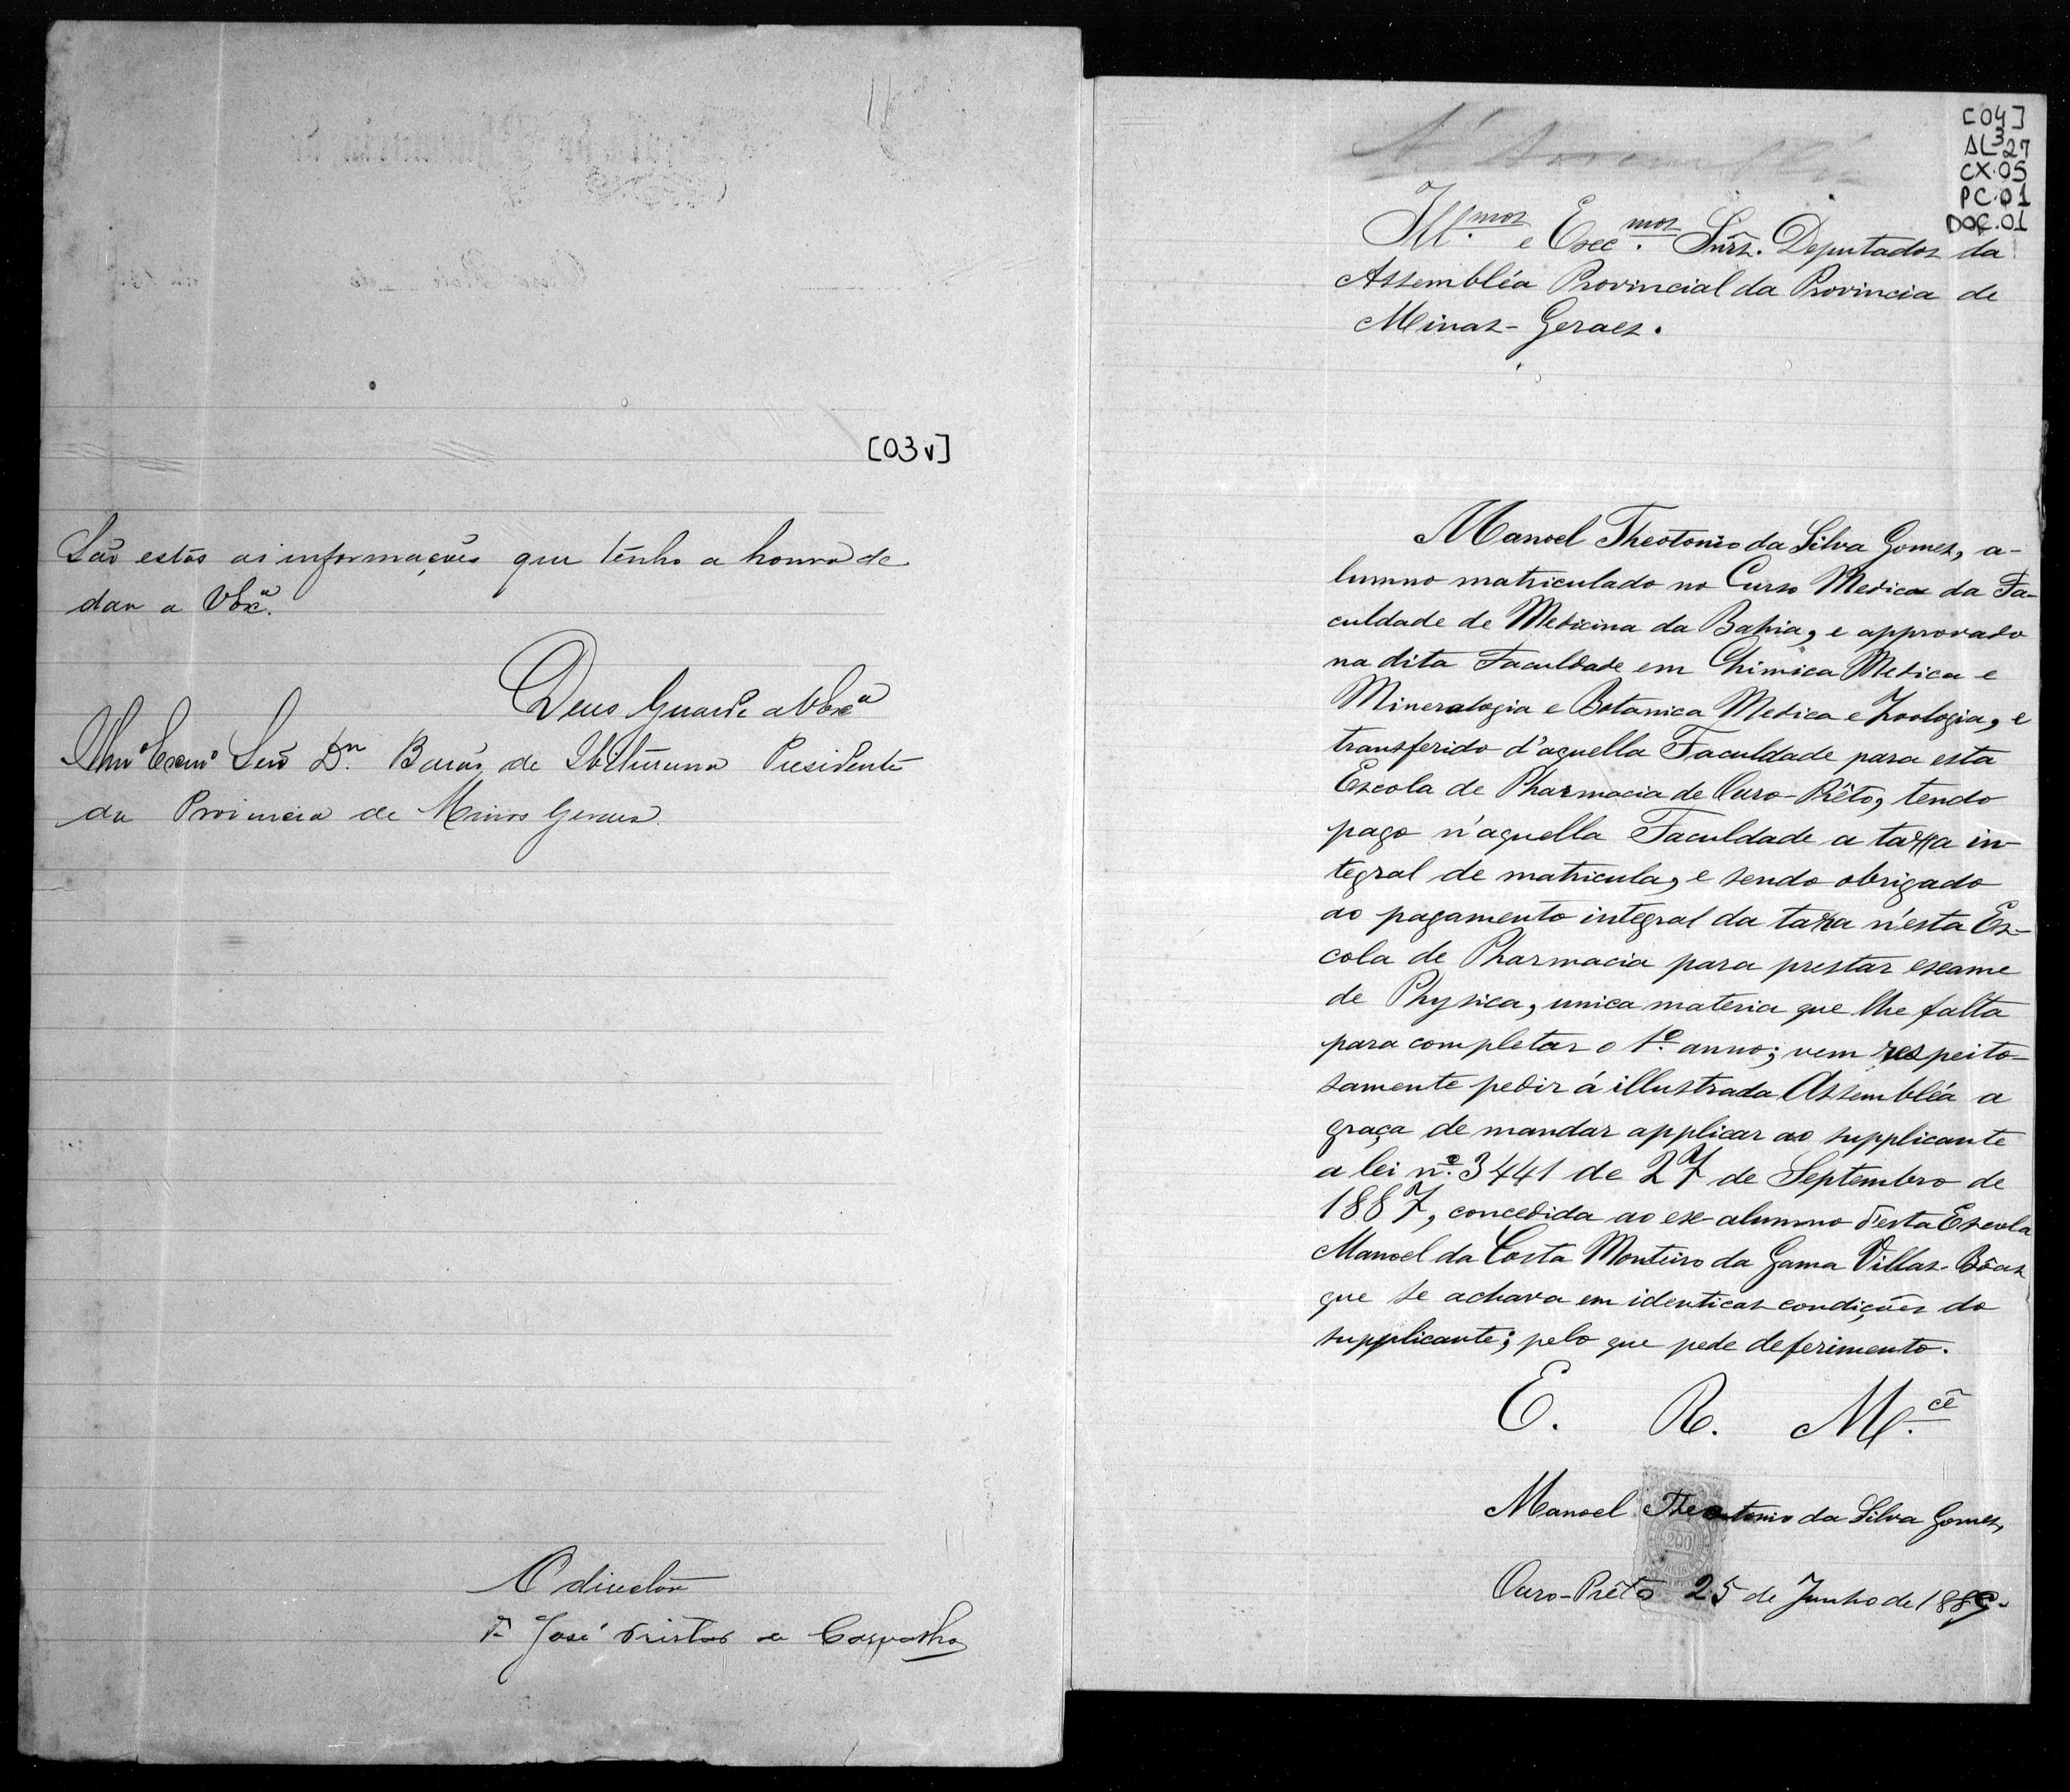 [03v]
São estas as informações que tenho a honra de
dar a VExª.
Deus Guarde a VExª
Illmº Exmº Senr Dr. Barão de Ibituruna Presidente
da Provincia de Minas Geraes
O director
Dr José Tristão de Carvalho
[04]
AL³-27
CX.05
PC.01
DOC.01
A' Assembléa
Ill.mos e Exc.mos Snrs. Deputados da
Assembléa Provincial da Provincia de
Minas-Geraes.
Manoel Theotonio da Silva Gomes, a-
lumno matriculado no Curso Medico da Fa-
culdade de Medicina da Bahia, e approvado
na dita Faculdade em Chimica Medica e
Mineralogia e Botanica Medica e Zoologia, e
transferido d'aquella Faculdade para esta
Escola de Pharmacia de Ouro-Prêto, tendo
pago n'aquella Faculdade a taxa in-
tegral de matricula, e sendo obrigado
ao pagamento integral da taxa n'esta Es-
cola de Pharmacia para prestar exame
de Physica, unica materia que lhe falta
para completar o 1º anno; vem respeito-
samente pedir á illustrada Assembléa a
graça de mandar applicar ao supplicante
a lei nº 3441 de 27 de Septembro de
1887, concedida ao ex-alumno d'esta Escola
Manoel da Costa Monteiro da Gama Villas-Bôas
que se achava em identicas condições do
supplicante; pelo que pede deferimento.
E. R. M.cê
Manoel Theotonio da Silva Gomes,
200
Ouro-Prêto 25 de Junho de 1889.